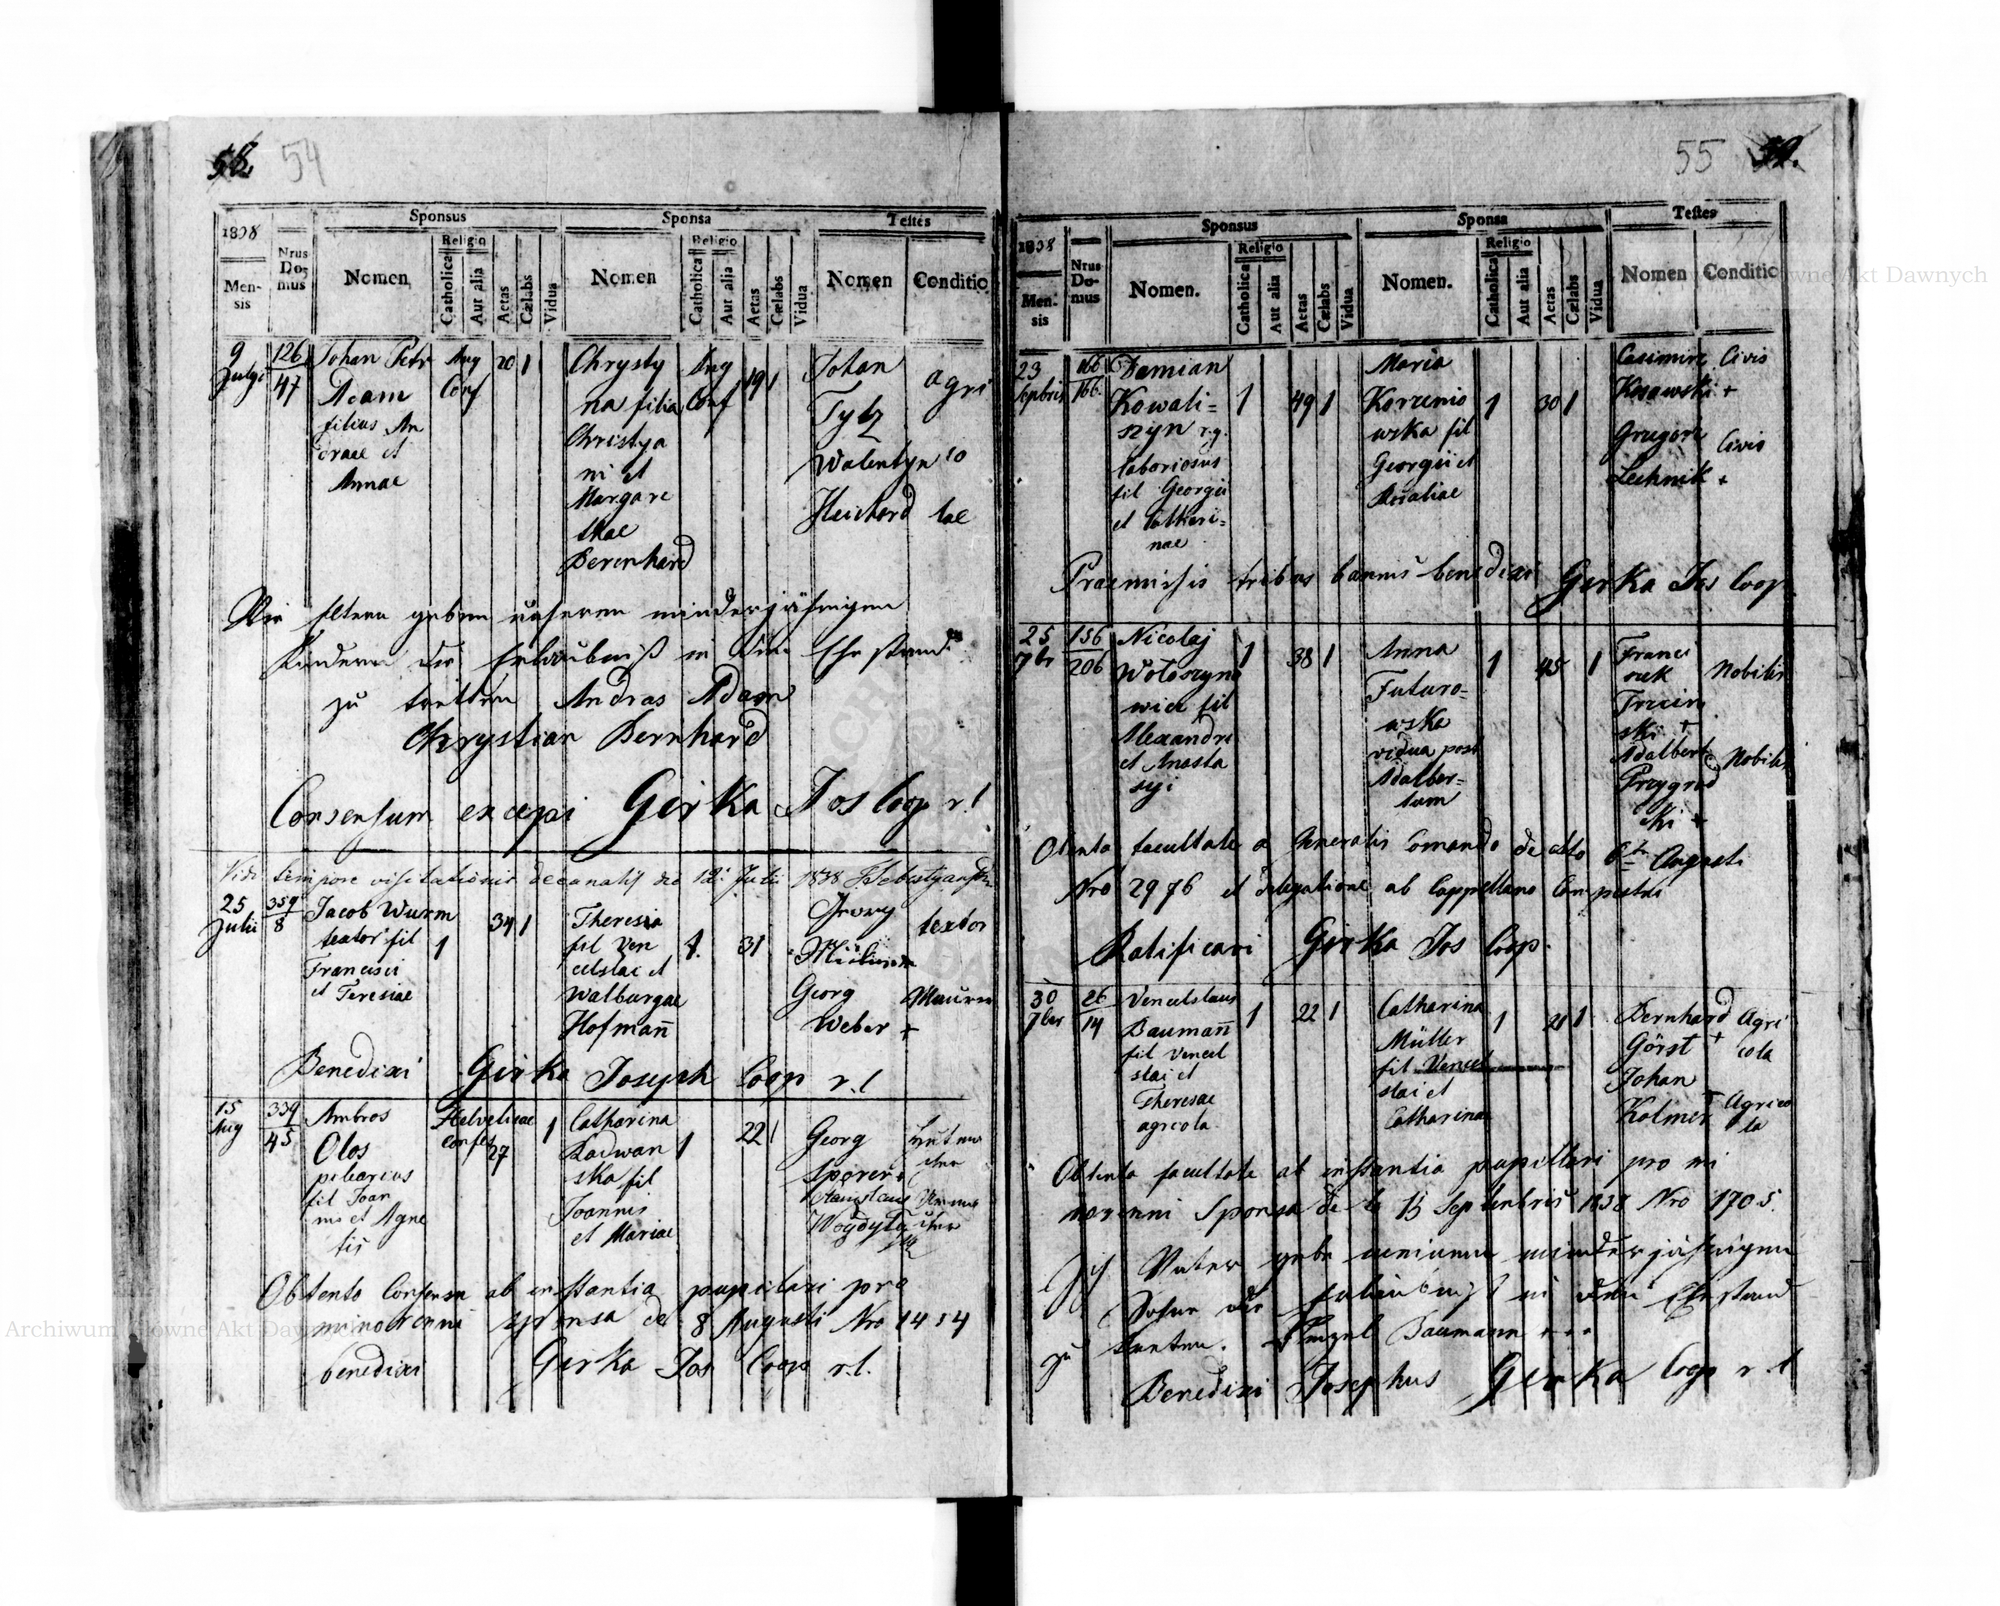 58. 54
Sponsus Sponsa Testes
1838 Nrus Domus Religio Religio
Mensis Nomen Catholica Aut alia Aetas Cælebs Vidua Nomen Catholica Aut alia Aetas Cælebs Vidua Nomen Conditio
9 Julii
126
47
Johan Petr
Adam
filius An
dreae et
Annae
Aug
Conf
20 1
Chrysty
na filia
Christya
ni et
Margare
thae
Berenhard
Aug
Conf
19 1
Johan
Tytz
Walentyn
Heichard
agri
co
lae
Wir Eltern geben unseren minderjährigen
Kindern die Erlaubniß in den Ehestand
zu tretten Andras Adam
Chrystian Bernhard
Consensum excepi Girka Jos Coop r.l
Vidi tempore visitationis decanalis die 12 Julii 1838
25
Julii
359
8
Jacob Wurm
textor fil
Francisci
et Teresiae
1
34 1
Theresia
fil Ven
ceslai et
Walburgae
Hofmañ
1.
31
Georg
Georg
Weber +
textor
Maurer
Benedixi Girka Joseph Coop r.l
15
Aug
339
45
Ambros
Olos
pilearius
fil Joan
nis et Agne
tis
Helveticae
confes
27
1
Catharina
Radwan
ska fil
Joannis
et Mariae
1
22 1
Georg
Sperer +
Stanislaus
Obtento Consensu ab instantia pupilari pro
minorenni sponsa de 8 Augusti Nro 1414
benedixi Girka Jos Coop r.l.
55 59.
Sponsus Sponsa Testes
1838 Nrus Domus Religio Religio
Mensis Nomen. Catholica Aut alia Aetas Cælebs Vidua Nomen. Catholica Aut alia Aetas Cælebs Vidua Nomen Conditio
23
Septbris
166
166
Damian
Kowali=
szyn r.g.
laboriosus
fil Georgii
et Catheri=
nae
1
49 1
Maria
Korzenio
wska fil
Georgii et
Rosaliae
1
30 1
Casimire
Kosowski +
Gregori
Lechnik +
Civis
Civis
Praemissis tribus bannis benedixi Girka Jos Coop
25
7br
156
206
Nicolaj
Wołoszyno
wicz fil
Alexandri
et Anasta
syi
1
38 1
Anna
Futuro=
wska
vidua post
Adalber=
tum
1
45 1
Franci
szek
Trzcin
ski +
Adalbert
Przygrod
ski +
Nobilis
Nobilis
Obtenta facultate a Generalis Comando de dtto 6te Augusti
Nro 2976 et delegatione ab Cappellano Competenti
Ratificavi Girka Jos Coop.
30
7ber
26
14
Venceslaus
Baumañ
fil Vencel
slai et
Theresae
agricola
1
22 1
Catharina
Müller
fil Vencel
slai et
Catharinae
1
21 1
Bernhard
Görst +
Johan
Kolmer +
Agri
cola
Agrico
la
Obtenta facultate ab instantia pupillari pro mi
norenni Sponsa de to 15 Septembris 1838 Nro 1705.
Ich Vater gebe meinem minderjährigen
Sohne die Erlaubniß in den Ehestand
zu tretten. Baumann + + +
Benedixi Josephus Girka Coop r.l
Archiwum Główne Akt Dawnych
Archiwum Główne Akt Dawnych